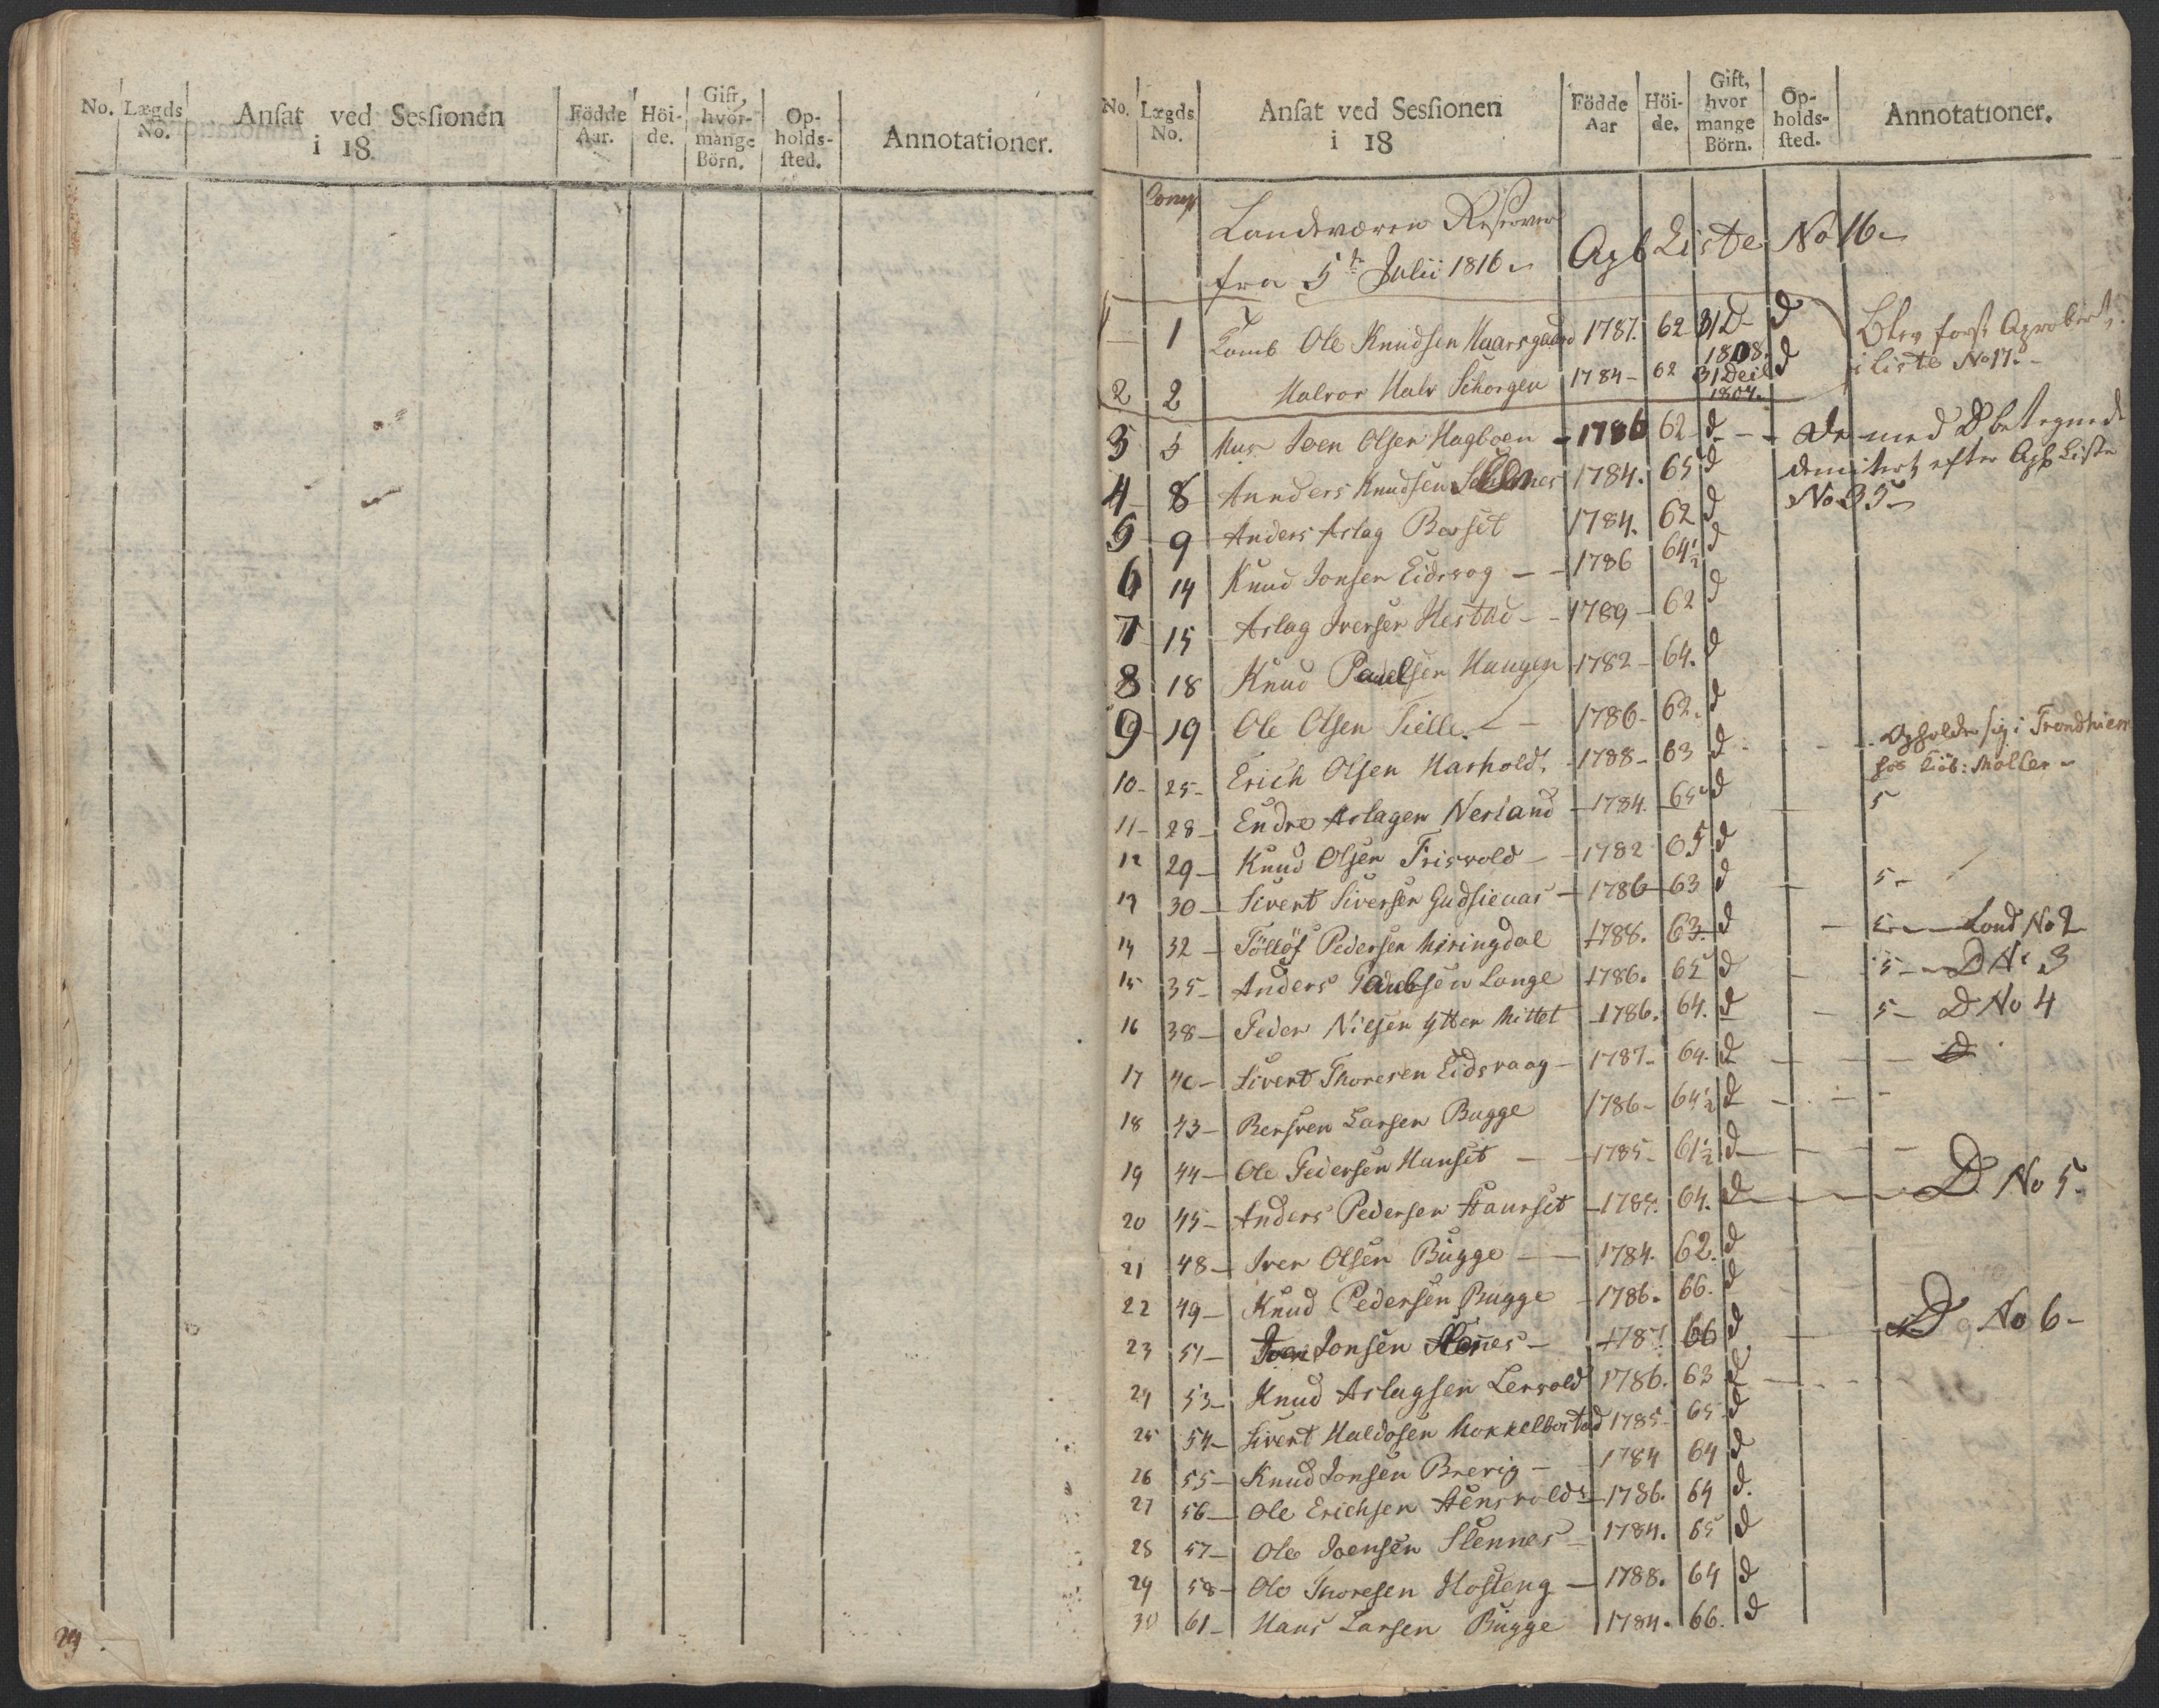 No. Lægds No. Ansat ved Sessionen i 18 Födde Aar. Höi-de. Gift, hvor-mange Börn. Op-holds-sted. Annotationer.
24
No. Lægds No. Ansat ved Sessionen i 18 Födde Aar Höi-de. Gift, hvor mange Börn. Op-holds-sted. Annotationer.
Landeværen Reserver
fra 5te Julii 1816 Agb Liste No 16
1 1 Ole Knudsen Haarsgaard 1787. 62 31 D 1808. d Blev først Aprobert
2 2 Halvor Halv 1784 62 31 Deil 1807. d i Liste No 17.
3 5 Mus Joen Olsen Hagboen 1786 62 d De med D betegnede
4 8 Annders Knudsen 1784. 65 d demitert efter Agb Liste
No 35
5 9 Anders Aslag Borset 1784. 62 d
6 14 Knud Jonsen Eidsvog 1786 64 1/2 d
7 15 Aslag Iversen Hestad 1789 62 d
8 18 Knud Paulsen Haugen 1782 64. d
9 19 Ole Olsen Sielle 1786 62. d
10 25 Erich Olsen Harhold. 1788 63 d Opholder sig i Trondhiem
hos Møller
11 28 Endre Aslagen Nerland 1784. 65 d 5
12 29 Knud Olsen Frisvold 1782 65 d
13 30 Sivert Siversen 1786 63 d 5
14 32 Föllöf Pedersen Miringdal 1788. 63. d 5 Cond No 2
15 35 Anders Paulsen Lange 1786. 65 d 5 D No 3
16 38 Peder Nielsen Ytter Mittet 1786. 64. d 5 D No 4
17 40 Sivert Thoresen Eidsvaag 1787 64. d D
18 43 Bersven Larsen Bugge 1786 64 1/2 d
19 44 Ole Pedersen Hanset 1785 61 1/2 d
20 45 Anders Pedersen Staurset 1785. 64. d D No 5.
21 48 Iver Olsen Bugge 1784. 62. d
22 49 Knud Pedersen Bugge 1786. 66. d
23 51 Joen Jonsen 1787 66 d D No 6
24 53 Knud Aslagsen Lervold 1786. 63 d
25 54 Sivert Haldosen Mokkelbostad 1785 65 d
26 55 Knud Jonsen Brevig 1784 64 d
27 56 Ole Erichsen Stensvold 1786. 64 d.
28 57 Ole Joensen Slennes 1784. 65 d
29 58 Ole Thoresen Hosteng 1788. 64 d
30 61 Hans Larsen Bugge 1784. 66. d